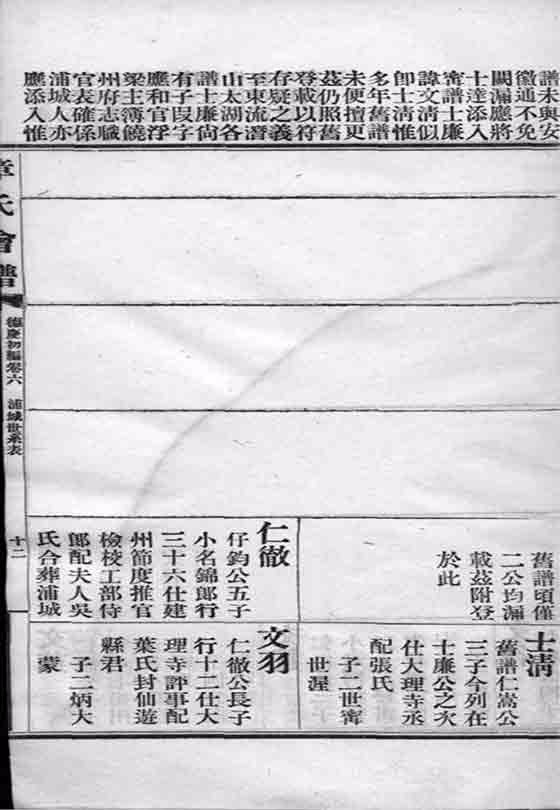 譜未與安
徽通不免
闕漏應將
士達添入
甯譜士廉
諱文清似
卽士清惟
多年舊譜
未便擅更
茲仍照舊
登載以符
存疑之義
至東流潛
山太湖各
譜士廉尚
有子叚字
應和官浮
梁主簿饒
州府志職
官表確係
浦城人亦
應添入惟
舊譜頃僅
二公均漏
載茲附登
於此
仁徹
仔鈞公五子
小名錦郎行
三十六仕建
州節度推官
檢校工部侍
郎配夫人吳
氏合葬浦城
士清
舊譜仁嵩公
三子今列在
士廉公之次
仕大理寺丞
配張氏
子二世甯
世渥
文羽
仁徹公長子
行十二仕大
理寺評事配
葉氏封仙遊
縣君
子二炳大
蒙
章氏會譜
德慶初編卷六
浦城世系表
十二